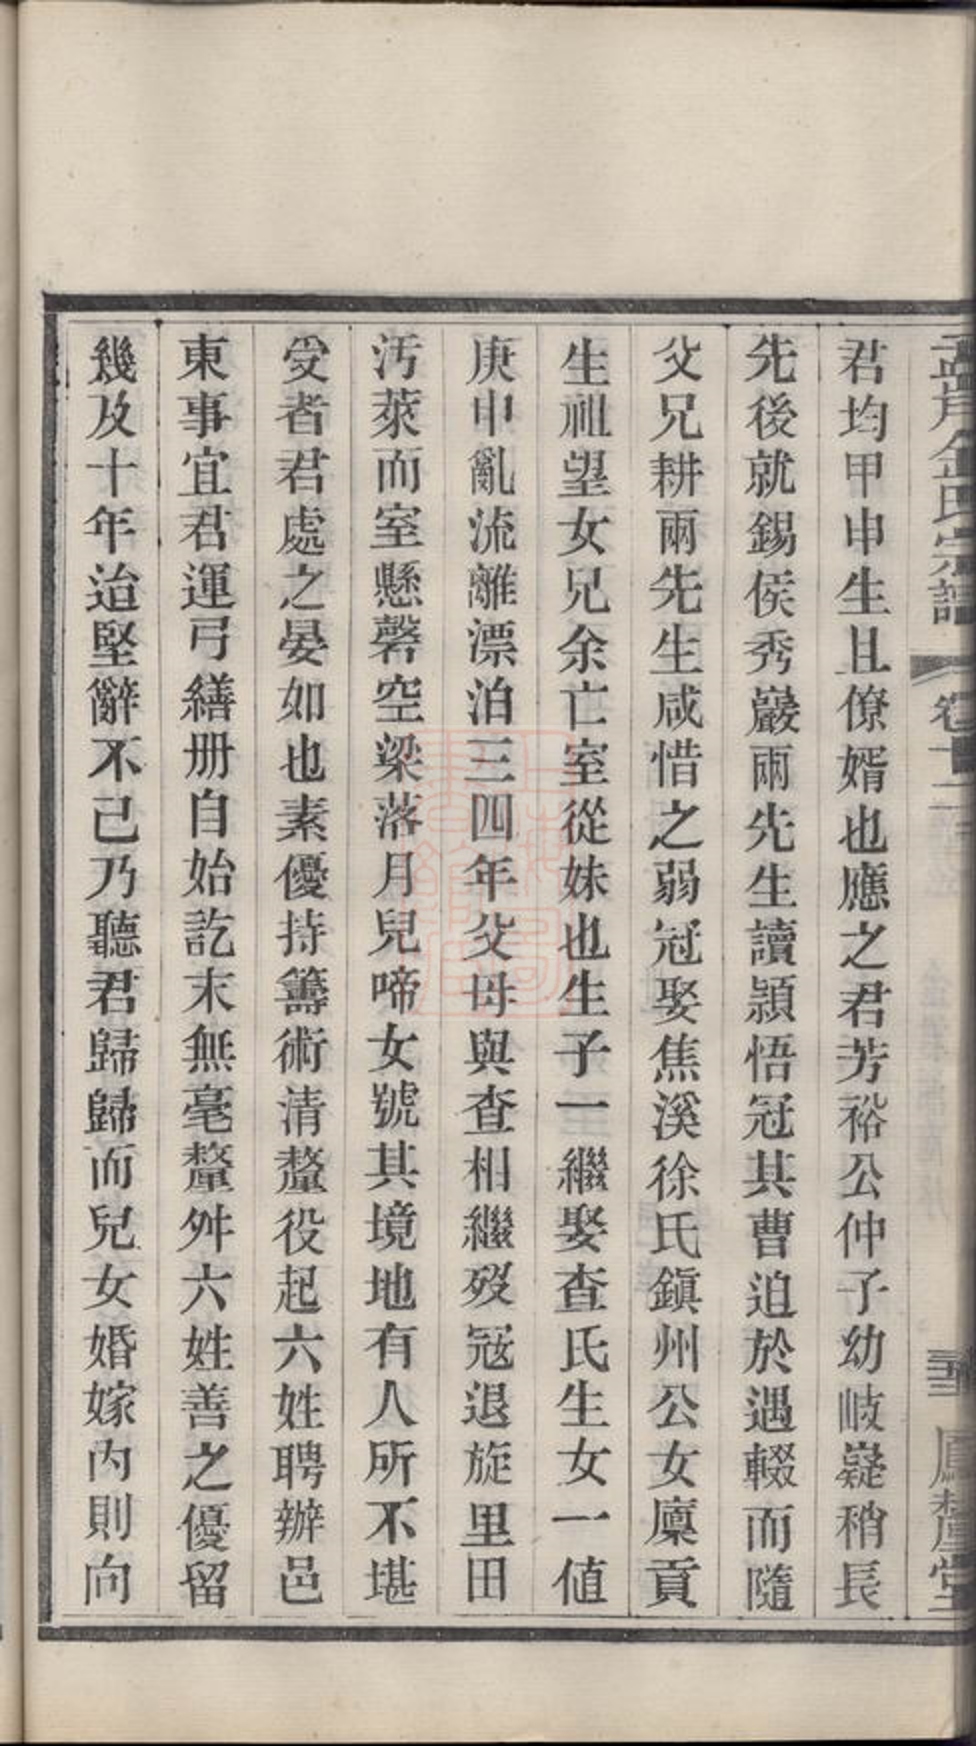 君均甲申生且僚婿也應之君芳裕公仲子幼岐嶷稍長
先後就錫侯秀巖兩先生讀頴悟冠其曹迫於遇輟而隨
父兄耕兩先生咸惜之弱冠娶焦溪徐氏鎭州公女廩貢
生祖望女兄余亡室從妹也生子一繼娶查氏生女一値
庚申亂流離漂泊三四年父母與查相繼歿冦退旋里田
汚萊而室懸磬空梁落月兒啼女號其境地有人所不堪
受者君處之晏如也素優持籌術清釐役起六姓聘辦邑
東事宜君運弓繕册自始訖末無毫釐舛六姓善之優留
幾及十年迨堅辭不己乃聽君歸歸而兒女婚嫁內則向
氏宗譜
卷十二